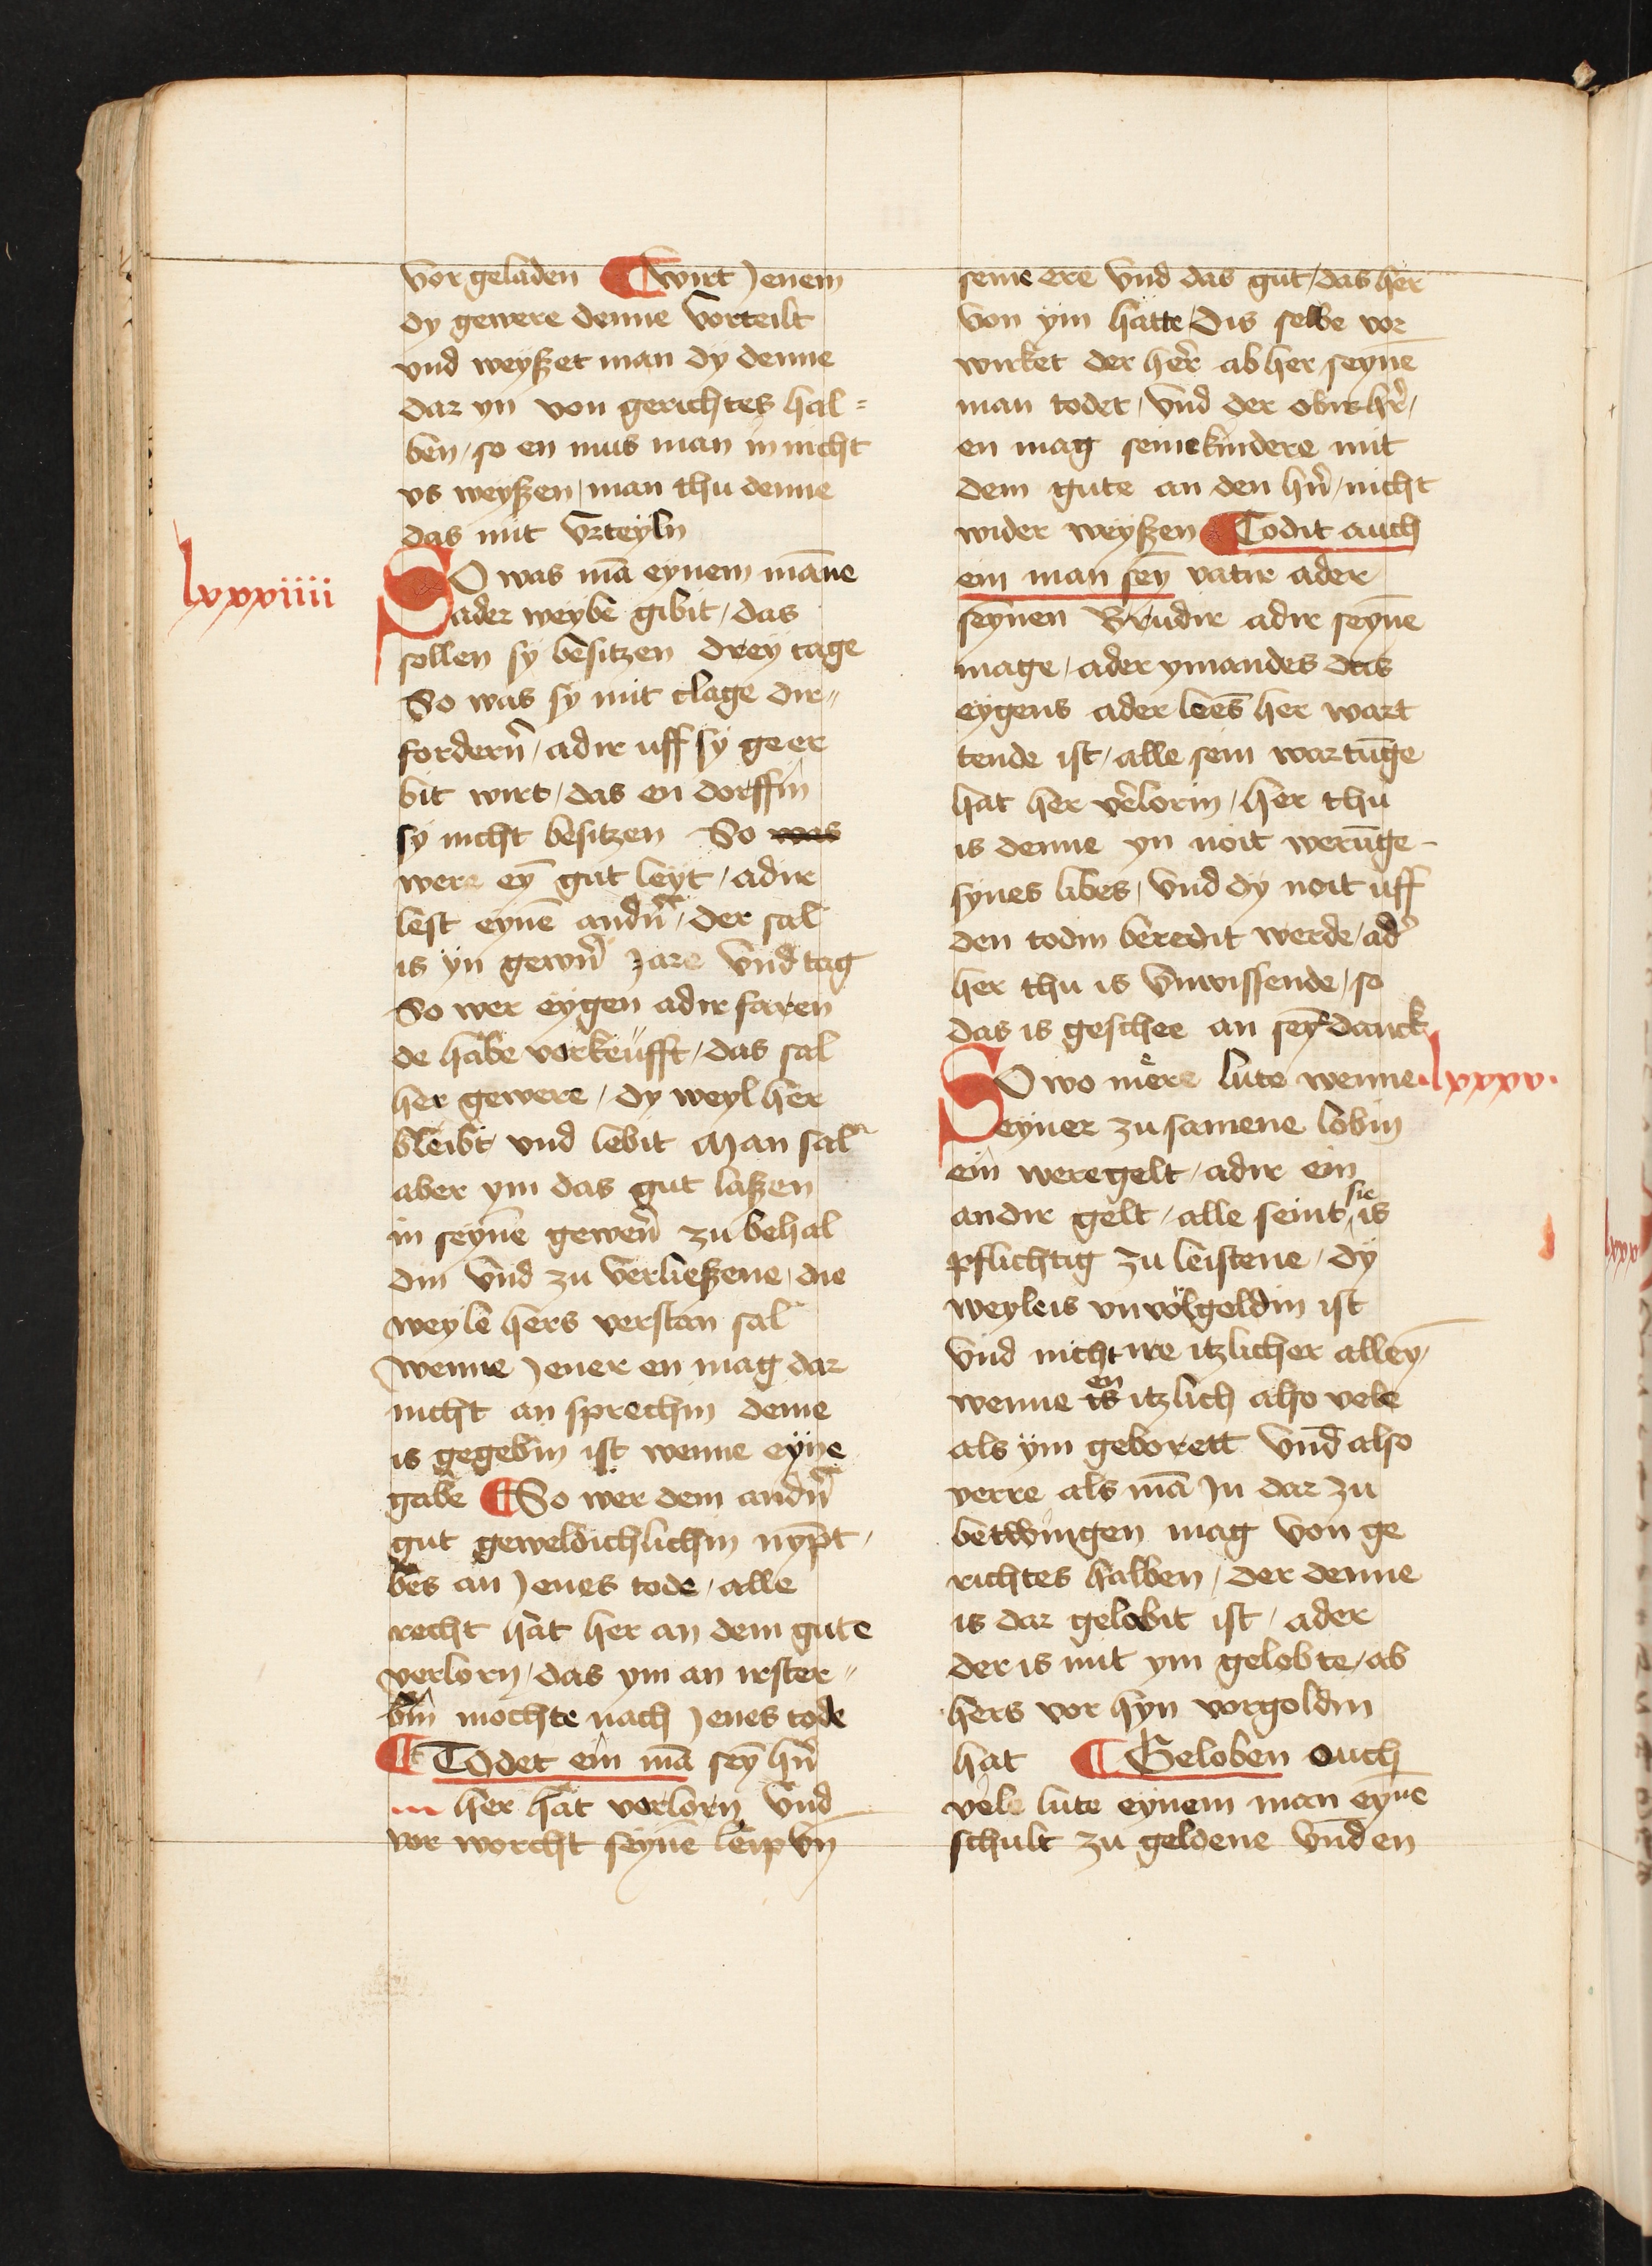 vor geladen ¶ wirt Jenem
dy gewere denne vorteilt
vnd weyßet man dy denne
dar yn von gerichtes hal=
ben / so en mus man in nicht
vs weyßen / man thu denne
das mit vrteyln
lxxxiiii
SO was mā eynem māne
ader weybe gibit / das
sollen sy besitzen drey tage
So was sy mit clage dir=
fordern̄ / adir uff sy geer
bit wirt / das en dorffin
sy nicht besitzen So was
were ey̅ gut leyt / adir
lest eyne̅ andn̄ / der sal
is yn gewn̄ Jare vnd tag
So wer eygen adir faren
de habe vorkeufft / das sal
her gewere / dy weyl her
bleibt vnd lebit Man sal
aber ym das gut laßen
in seyne gewen̄ zu behal
din vnd zu verließene / die
weyle hers verstan sal
wenne Jener en mag dar
nicht an sprechin deme
is gegebin ist wenne eyne
gabe ¶ So wer dem andn̄
gut geweldichlichin nypt /
bes an Jenes tode / alle
recht hat her an dem gute
verlorn / das ym an irster=
bin mochte nach Jenes tode
¶ Todet ein mā sey̅ hn̄
her hat verlorn vnd
vor worcht seyne̅ leip vn̄
seine ere vnd das gut / das her
von ym hatte / Dis selbe vor
wirket der her̄ ab her seyne̅
man todet / vnd der obir hr̄ /
en mag seine kindere mit
dem gute an den hn̄ / nicht
wider weyßen ¶ Todit auch
ein man sey̅ vatir ader
seynen Brudir adir seyne̅
mage / ader ymandes das
eygens ader lees̄ her wart
tende ist / alle sein wartūge
hat her v̄lorin / her thu
is denne yn noit werūge
synes libes / vnd dy noit uff
den todin beredit werde / ad̄
her thu is vnwissende / so
das is geschee an sey̅ danck
lxxxv.
SO wo mere lute wenne
eyner zu samene lobin
ein weregelt / adir ein
andir gelt / alle seint sie is
pflichtig zu leistene / dy
weyle is vnvolgeldin ist
vnd nicht ire itzlicher alley̅ /
wenne is en itzlich also vele
als ym geborett vnd also
verre als mā Jn dar zu
betwingen mag von ge
richtes halben / der denne
is dar gelobit ist / ader
der is mit ym gelobte / ab
hers vor hyn vorgoldin
hat ¶ Geloben ouch
vele lute eynem man eyne
schult zu geldene vnd en